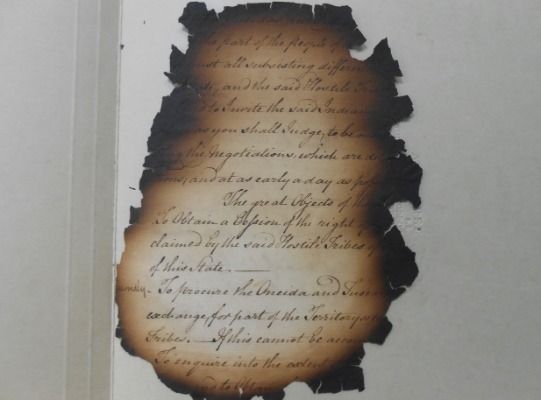 part of the people of
all subsisting differen
and the said Hostile Tri
to Invite the said Indian
as you shall Judge, to be
the Negotiations, which are
and at as early a day as
The great Objects of th
To Obtain a Cession of the right
claimed by the said Hostile Tribes
of this State.
To procure the Oneida and Tus
exchange, for part of the Territory
Tribes. — If this cannot be accom
To enquire into the extent
and to Obtain